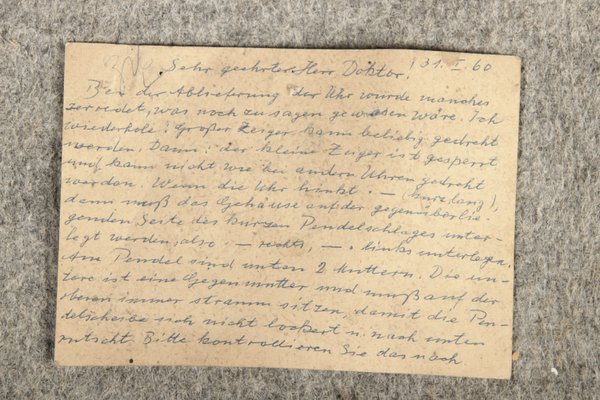 Sehr geehrter Herr Doktor! 31. I. 60
Bei der Ablieferung der Uhr wurde manches
zerredet, was noch zu sagen gewesen wäre. Ich
wiederhole: Großer Zeiger kann beliebig gedreht
werden. Dann: der kleine Zeiger ist gesperrt
und kann nicht wie bei andern Uhren gedreht
werden. Wenn die Uhr hinkt . — (kurz, lang),
dann muß das Gehäuse auf der gegenüberlie-
genden Seite des kurzen Pendelschlages unter-
legt werden, also . — rechts, — . links unterlegen.
Am Pendel sind unten 2 Muttern. Die un-
tere ist eine Gegenmutter und muß auf der
oberen immer stramm sitzen, damit die Pen-
delscheibe sich nicht lockert u. nach unten
rutscht. Bitte kontrollieren Sie das nach